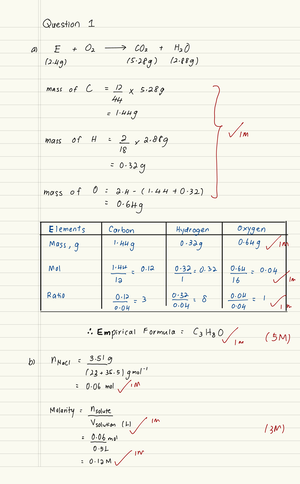 Question 1
a) E + O₂ → CO₂ + H₂O
(2.4g) (5.28g) (2.88g)
mass of C = 12/44 × 5.28g
= 1.44g
mass of H = 2/18 × 2.88g
= 0.32g
✓1M
mass of O = 2.4 - (1.44 + 0.32)
= 0.64g
Elements Carbon Hydrogen Oxygen
Mass, g 1.44g 0.32g 0.64g ✓1M
Mol 1.44/12 = 0.12 0.32/1 = 0.32 0.64/16 = 0.04 ✓1M
Ratio 0.12/0.04 = 3 0.32/0.04 = 8 0.04/0.04 = 1 ✓1M
∴ Empirical Formula = C₃H₈O ✓1M (5M)
b) nNaCl = 3.51g / (23 + 35.5) g mol⁻¹
= 0.06 mol ✓1M
Molarity = nsolute / Vsolution (L) ✓1M
= 0.06 mol / 0.5L (3M)
= 0.12M ✓1M